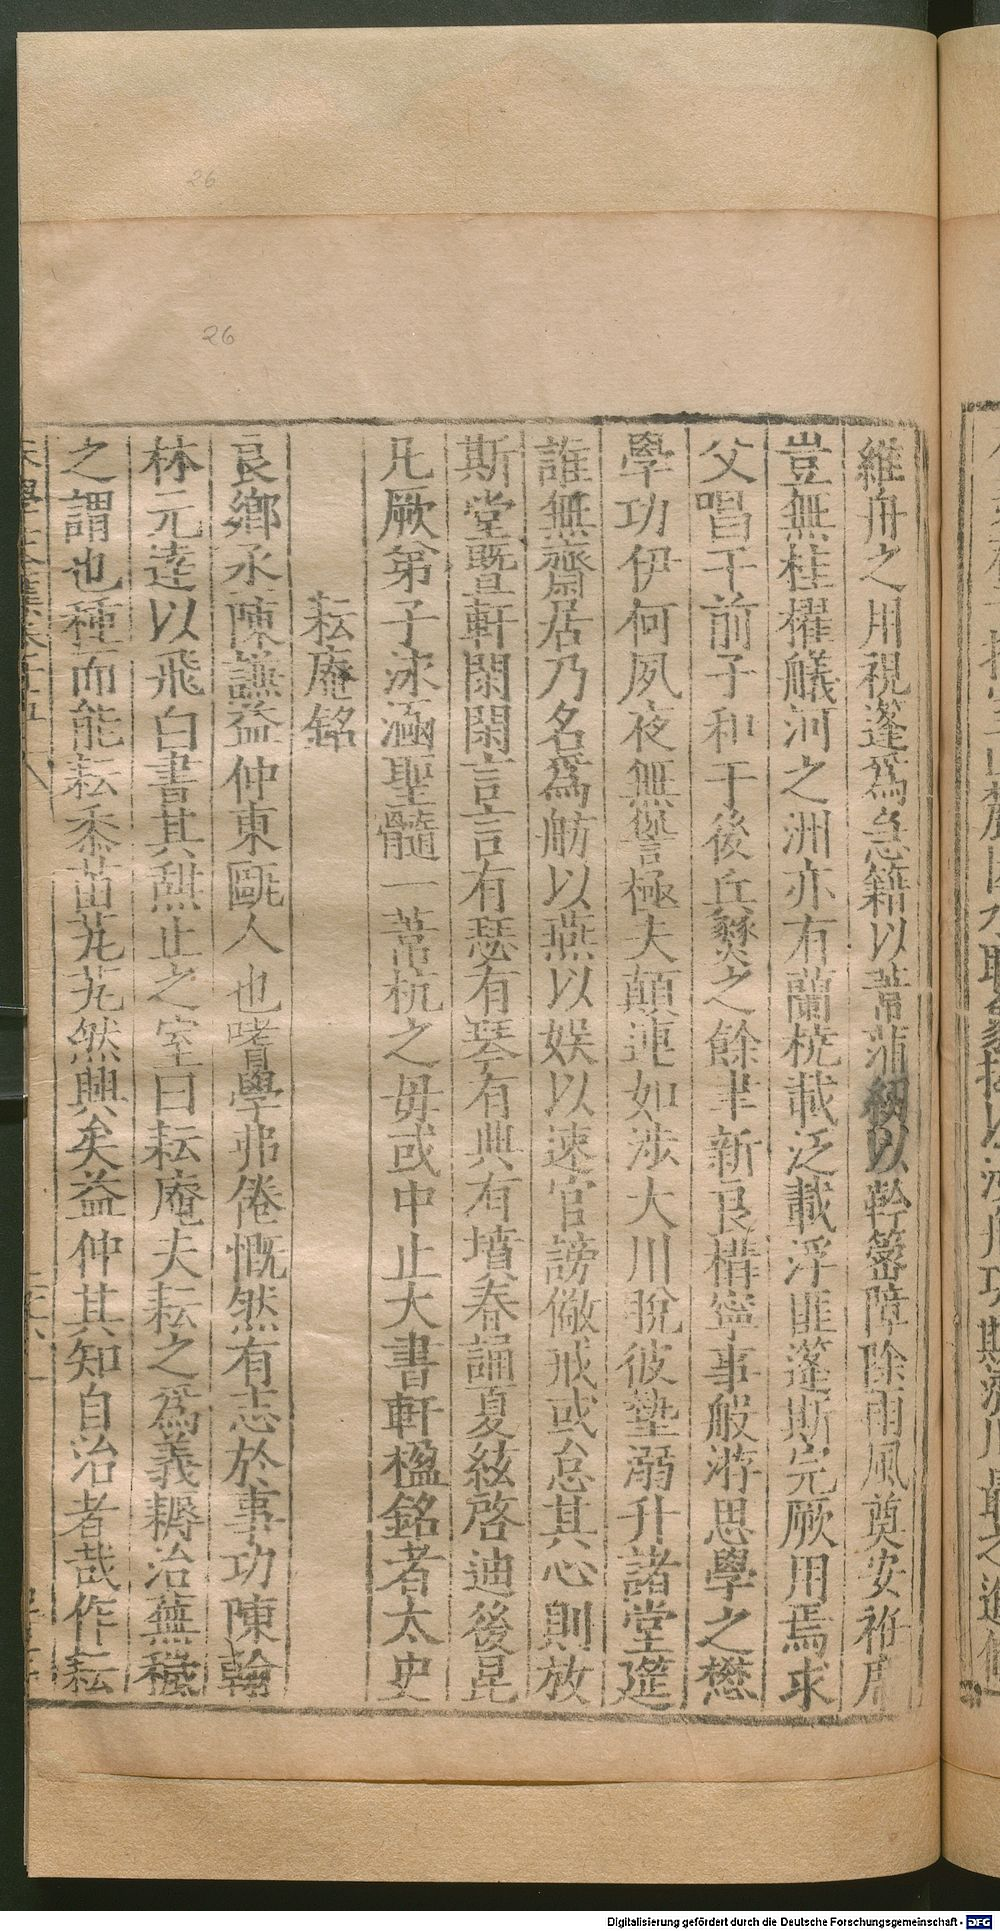 維舟之用視篷爲急籍以蒻蒲紉以幹簬障除雨風奠安裕
豈無桂櫂艤河之洲亦有蘭橈載泛載浮匪篷斯完厥用焉求
父唱于前子和于後兵燹之餘聿新良構寧事般游思學之懋
學功伊何夙夜無愆極夫顛連如涉大川脫彼墊溺升諸堂筵
誰無齋居乃名爲舫以燕以娛以速官謗儆戒或怠其心則放
斯堂暨軒閑閑言言有瑟有琴有典有墳春誦夏絃啓迪後昆
凡厥弟子泳涵聖髓一葦杭之毋或中止大書軒楹銘者太史
耘庵銘
良鄉丞陳謙益仲東甌人也嗜學弗倦慨然有志於事功陳翰
林元逵以飛白書其燕止之室曰耘庵夫耘之爲義耨治蕪穢
之謂也種而能耘黍苗芃芃然興矣益仲其知自治者哉作耘
26
26
Digitalisierung gefördert durch die Deutsche Forschungsgemeinschaft - DFG